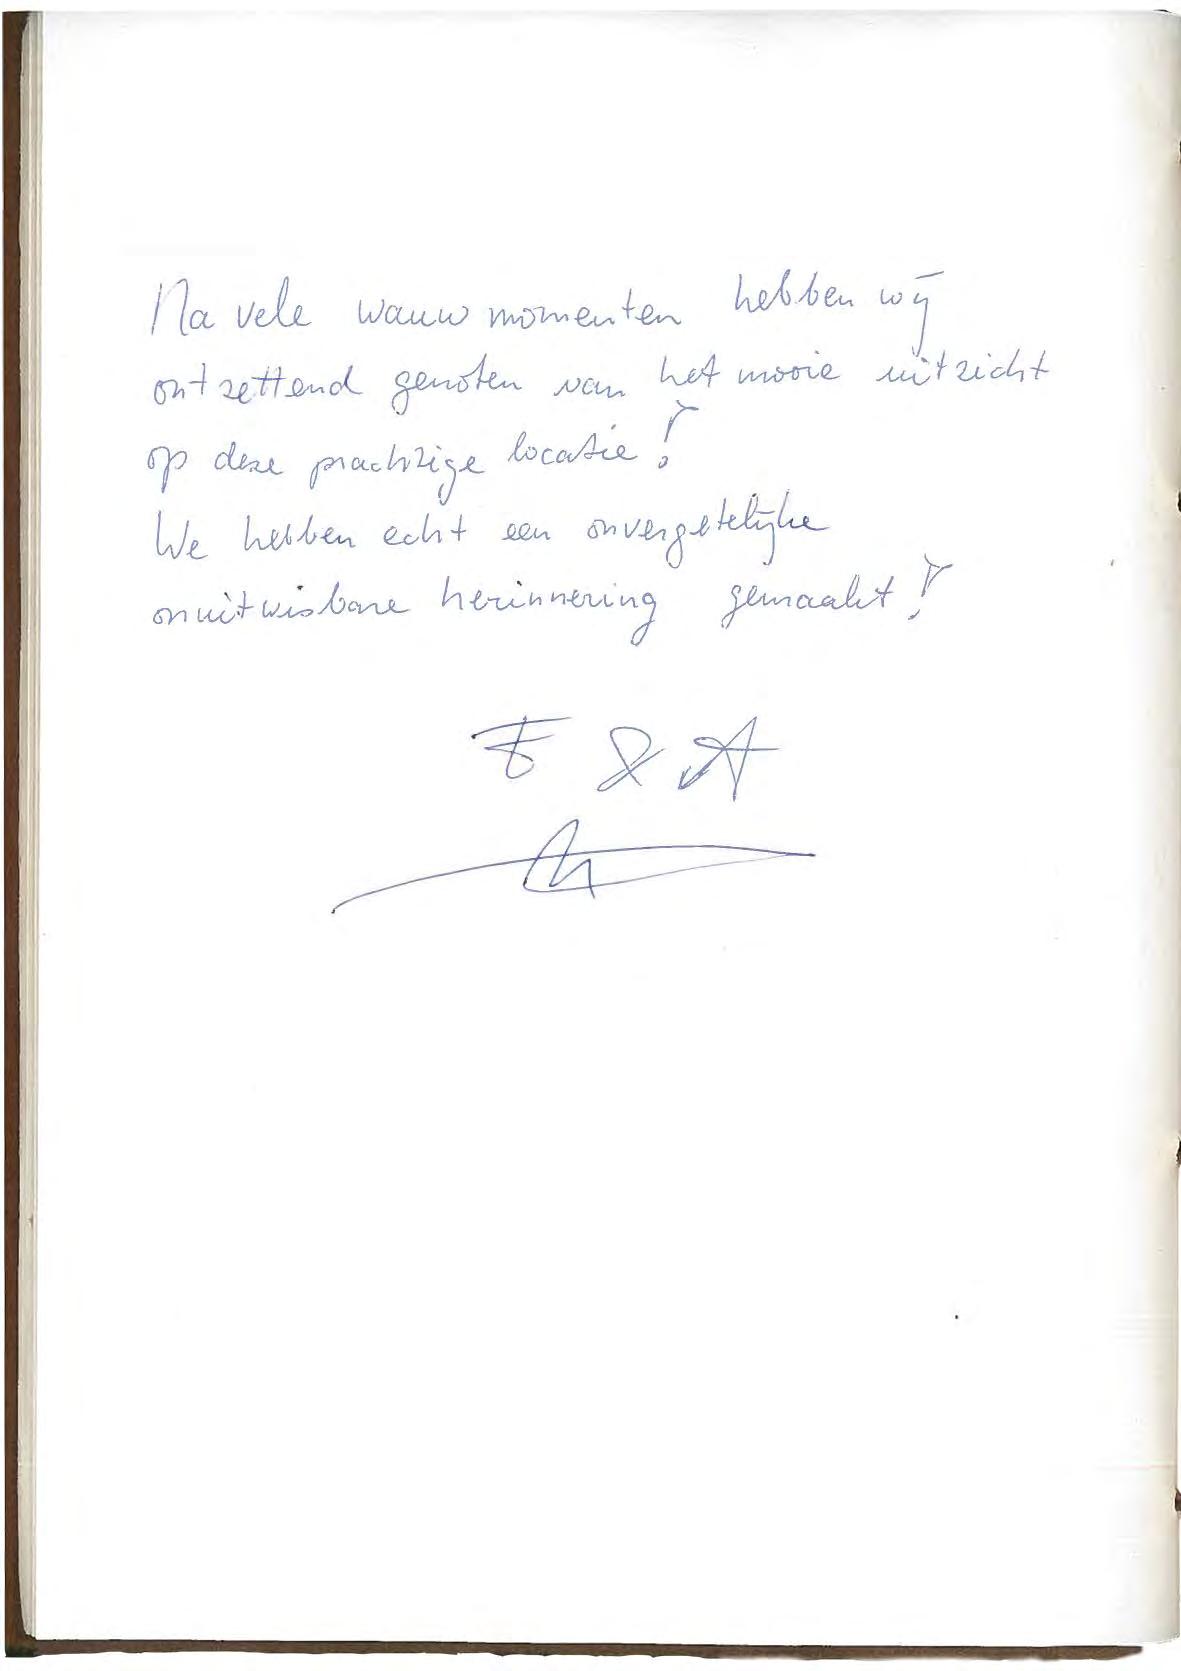 Na vele wauw momenten hebben wij
ontzettend genoten van het mooie uitzicht
op deze prachtige locatie!
We hebben echt een onvergetelijke
onuitwisbare herinnering gemaakt!
& A